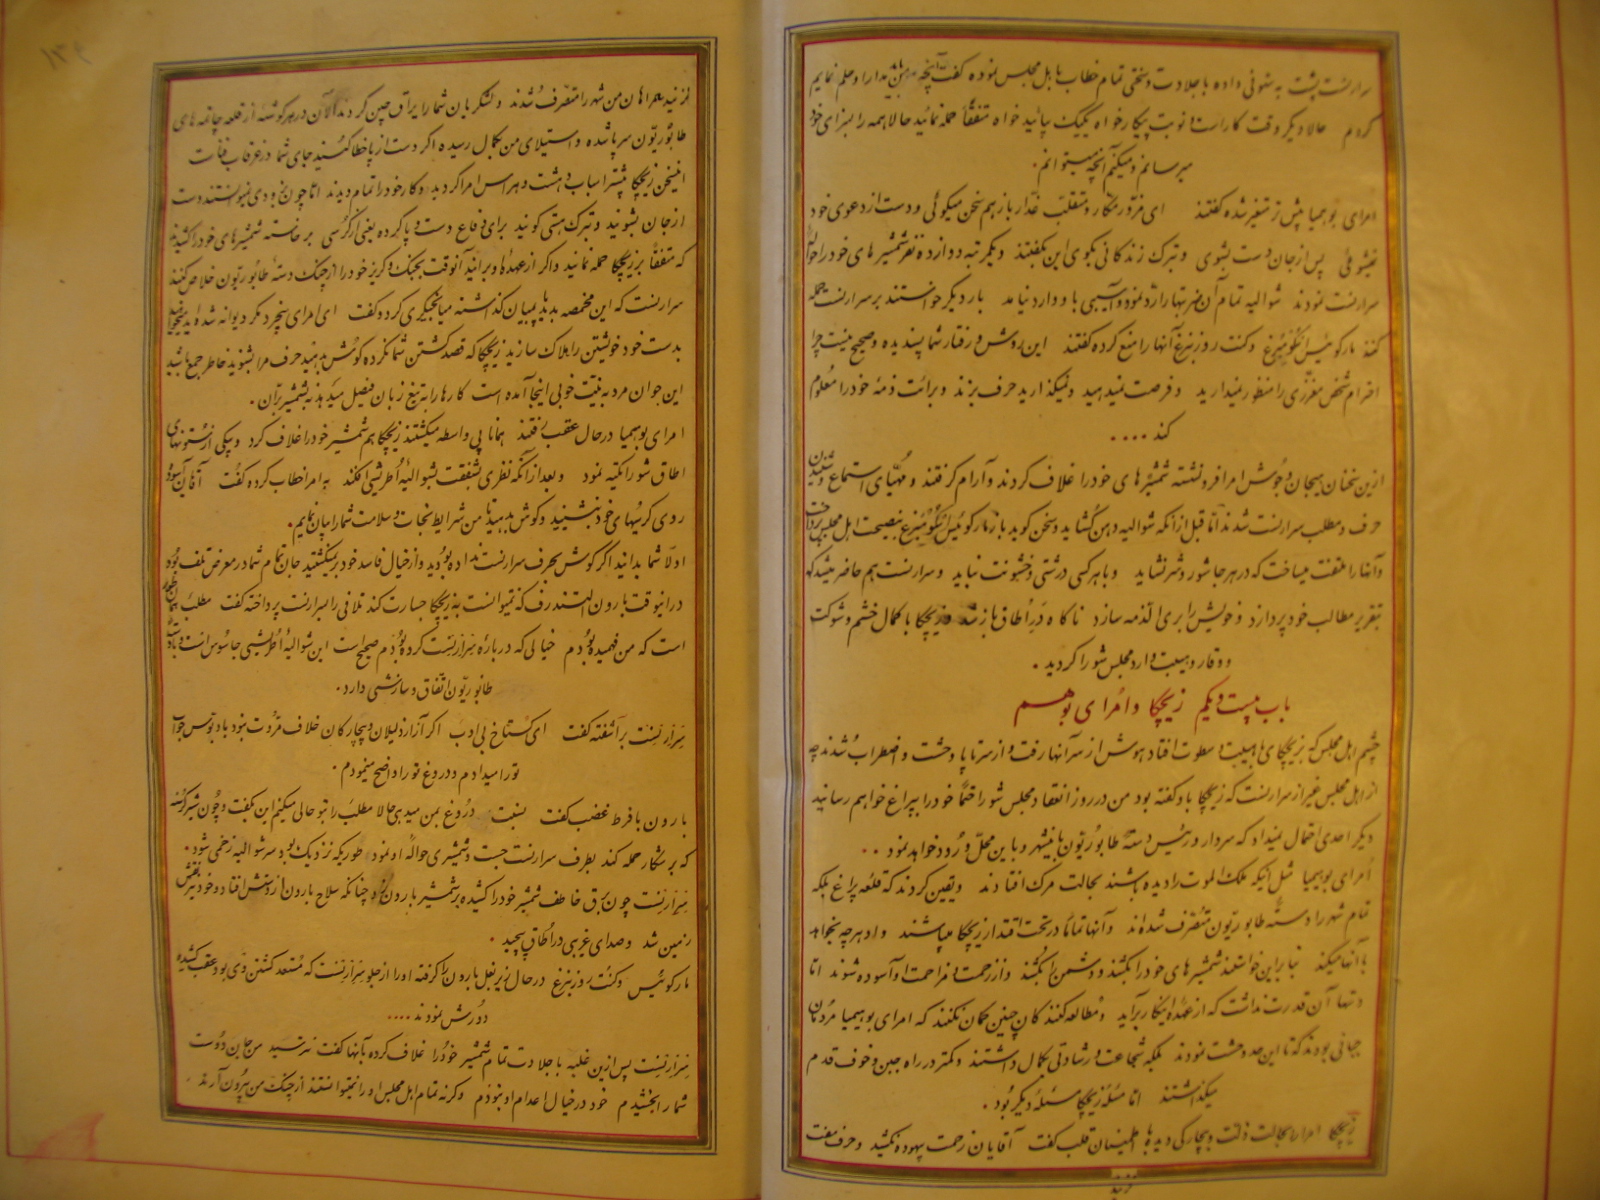 سرارنست پشت به ستونی داده با جلادت و سختی تمام خطاب باهل مجلس نموده گفت آنچه من باید مدارا و حلم نمایم
کردم حالا دیگر وقت کار است نوبت پیکار خواه یکیک بیائید خواه متفقاً حمله نمائید حالا همه را بسزای خود
میرسانم و میکنم آنچه میتوانم.
امرای بوهمیا پیش‌تر متغیر شده گفتند ای مزور مکار و متقلب غدار باز هم سخن میگوئی و دست از دعوی خود
نمیشوئی پس از جان دست بشوی و ترک زندگانی بگوی این بگفتند و یکمرتبه دوازده نفر شمشیرهای خود را حواله
سرارنست نمودند شوالیه تمام آن ضربتها را رد نمود و آسیبی باو وارد نیامد بار دیگر خواستند بر سرارنست حمله
کنند مارکوئیس و کنت روزنبرغ آنها را منع کرده گفتند این روش و رفتار شما پسندیده و صحیح نیست چرا
احترام شخص معززی را منظور نمیدارید و فرصت نمیدهید و نمیگذارید حرف بزند و برائت ذمهٔ خود را معلوم
کند ....
ازین سخنان هیجان و جوش امرا فرونشسته شمشیرهای خود را غلاف کردند و آرام گرفتند و مهیای استماع و شنیدن
حرف و مطلب سرارنست شدند اما قبل از آنکه شوالیه دهن گشاید و سخن گوید باز مارکوئیس بنصیحت اهل مجلس پرداخت
و آنها را ملتفت میساخت که در هر جا شور و شر نشاید و با هر کسی درشتی و خشونت نباید و سرارنست هم حاضر میشد که
بتقریر مطالب خود پردازد و خویش را بری الذمه سازد ناگاه در اطاق باز شد و زیچکا با کمال خشم و شوکت
و وقار و هیبت وارد مجلس شورا گردید.
باب بیست و یکم زیچکا و امرای بوهیم
چشم اهل مجلس که بزیچکای با هیبت و سطوت افتاد هوش از سر آنها رفت و از سر تا پا وحشت و اضطراب شدند چه
از اهل مجلس غیر از سرارنست که زیچکا باو گفته بود من در روز انعقاد مجلس شورا حتماً خود را بپراغ خواهم رسانید
دیگر احدی احتمال نمیداد که سردار و رئیس دستهٔ طابوریون باینشهر و باین محل ورود خواهد نمود ..
امرای بوهیمیا مثل اینکه ملک الموت را دیده باشند بحالت مرگ افتادند و یقین کردند که قلعه پراغ بلکه
تمام شهر را دستهٔ طابوریون متصرف شده‌اند و آنها تماماً در تحت اقتدار زیچکا میباشند و او هر چه بخواهد
با آنها میکند بنابراین خواستند شمشیرهای خود را بکشند و دشمن را بکشند و از زحمت و مزاحمت او آسوده شوند اما
و تنها آن قدرت نداشت که از عهدهٔ اینکار برآید و مطالعه کنندگان چنین گمان نکنند که امرای بوهیمیا مردمان
جبانی بودند که تا این حد وحشت نمودند بلکه شجاعت و رشادتی بکمال داشتند و کمتر در راه جبن و خوف قدم
میگذاشتند اما مسئلهٔ زیچکا مسئلهٔ دیگر بود.
زیچکا امرا را بحالت ذلت و بیچارگی دیده با اطمینان قلب گفت آقایان زحمت بیهوده نکشید و حرف مفت
نزنید
نزنید همراهان من شهر را متصرف شدند و لشکریان شما را یراق چین کردند الآن در هر گوشهٔ از قلعه چاتمه‌های
طابوریون سر پا شده و استیلای من بکمال رسیده اگر دست از پا خطا کنید جای شما در غرقاب فناست
اینسخن زیچکا بیشتر اسباب دهشت و هراس امرا گردید و کار خود را تمام دیدند اما چون بزودی نمیتوانستند دست
از جان بشویند و ترک هستی گویند برای دفاع دست و پا کرده یعنی از کرسی برخاسته شمشیرهای خود را کشیدند
که متفقاً بر زیچکا حمله نمایند و اگر از عهدهٔ او برآیند آنوقت بجنگ و گریز خود را از چنگ دستهٔ طابوریون خلاص کنند
سرارنست که این مخمصه بدید پا بمیان گذاشته میانجیگری کرد و گفت ای امرای بیخبر دیگر دیوانه شده‌اید میخواهید
بدست خود خویشتن را هلاک سازید زیچکا که قصد کشتن شما نکرده گوش بدهید حرف مرا بشنوید خاطر جمع باشید
این جوانمرد به نیت خوبی اینجا آمده است کارها را به تیغ زبان فیصل میدهد نه بشمشیر بران.
امرای بوهمیا در حال عقب رفتند همانا پی واسطه میگشتند زیچکا هم شمشیر خود را غلاف کرد و بیکی از ستونهای
اطاق شورا تکیه نمود و بعد از آنکه نظری بشفقت بشوالیهٔ اطریشی افکند به امرا خطاب کرده گفت آقایان آسوده
روی کرسیهای خود بنشینید و گوش بدهید تا من شرایط نجات و سلامت شما را بیان نمایم.
اولاً شما بدانید اگر گوش بحرف سرارنست نداده بودید و از خیال فاسد خود بر نمیگشتید جان تمام شما در معرض تلف بود
در اینوقت بارون التندرف که نمیتوانست به زیچکا جسارت کند تلافی را بسرارنست پرداخته گفت مطلب همان طور
است که من فهمیده بودم خیالی که دربارهٔ سرارنست کرده بودم صحیح است این شوالیهٔ اطریشی جاسوس است و با دستهٔ
طابوریون اتفاق و سازشی دارد.
سرارنست برآشفته گفت ای گستاخ بی ادب اگر آزار ذلیلان و بیچارگان خلاف مروت نبود با دبوس جواب
تو را میدادم و دروغ تو را واضح مینمودم.
بارون با فرط غضب گفت نسبت دروغ بمن میدهی حالا مطلب را بتو حالی میکنم این بگفت و چون شیر گرسنه
که بر شکار حمله کند بطرف سرارنست جست و شمشیری حوالهٔ او نمود طوریکه نزدیک بود سر شوالیه زخمی شود.
سرارنست چون برق خاطف شمشیر خود را کشیده بر شمشیر بارون زد چنانکه سلاح بارون از دستش افتاد و خود نیز نقش
زمین شد و صدای غریبی در اطاق پیچید.
مارکوئیس و کنت روزنبرغ در حال زیر بغل بارون را گرفته او را از جلو سرارنست که مستعد کشتن وی بود عقب کشیده
دورش نمودند ....
سرارنست پس ازین غلبه با جلادت تمام شمشیر خود را غلاف کرده بآنها گفت نترسید من جان دوست
شما را بخشیدم خود در خیال اعدام او نبودم وگرنه تمام اهل مجلس او را نمیتوانستند از چنگ من بیرون آرند